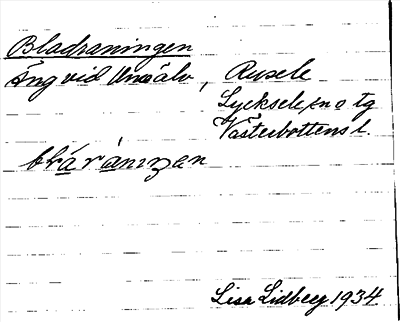 Bladraningen
Äng vid Umeälv, Rusele
Lycksele sn o tg
Västerbottens l.
bláránıŋen
Lisa Lidberg 1934